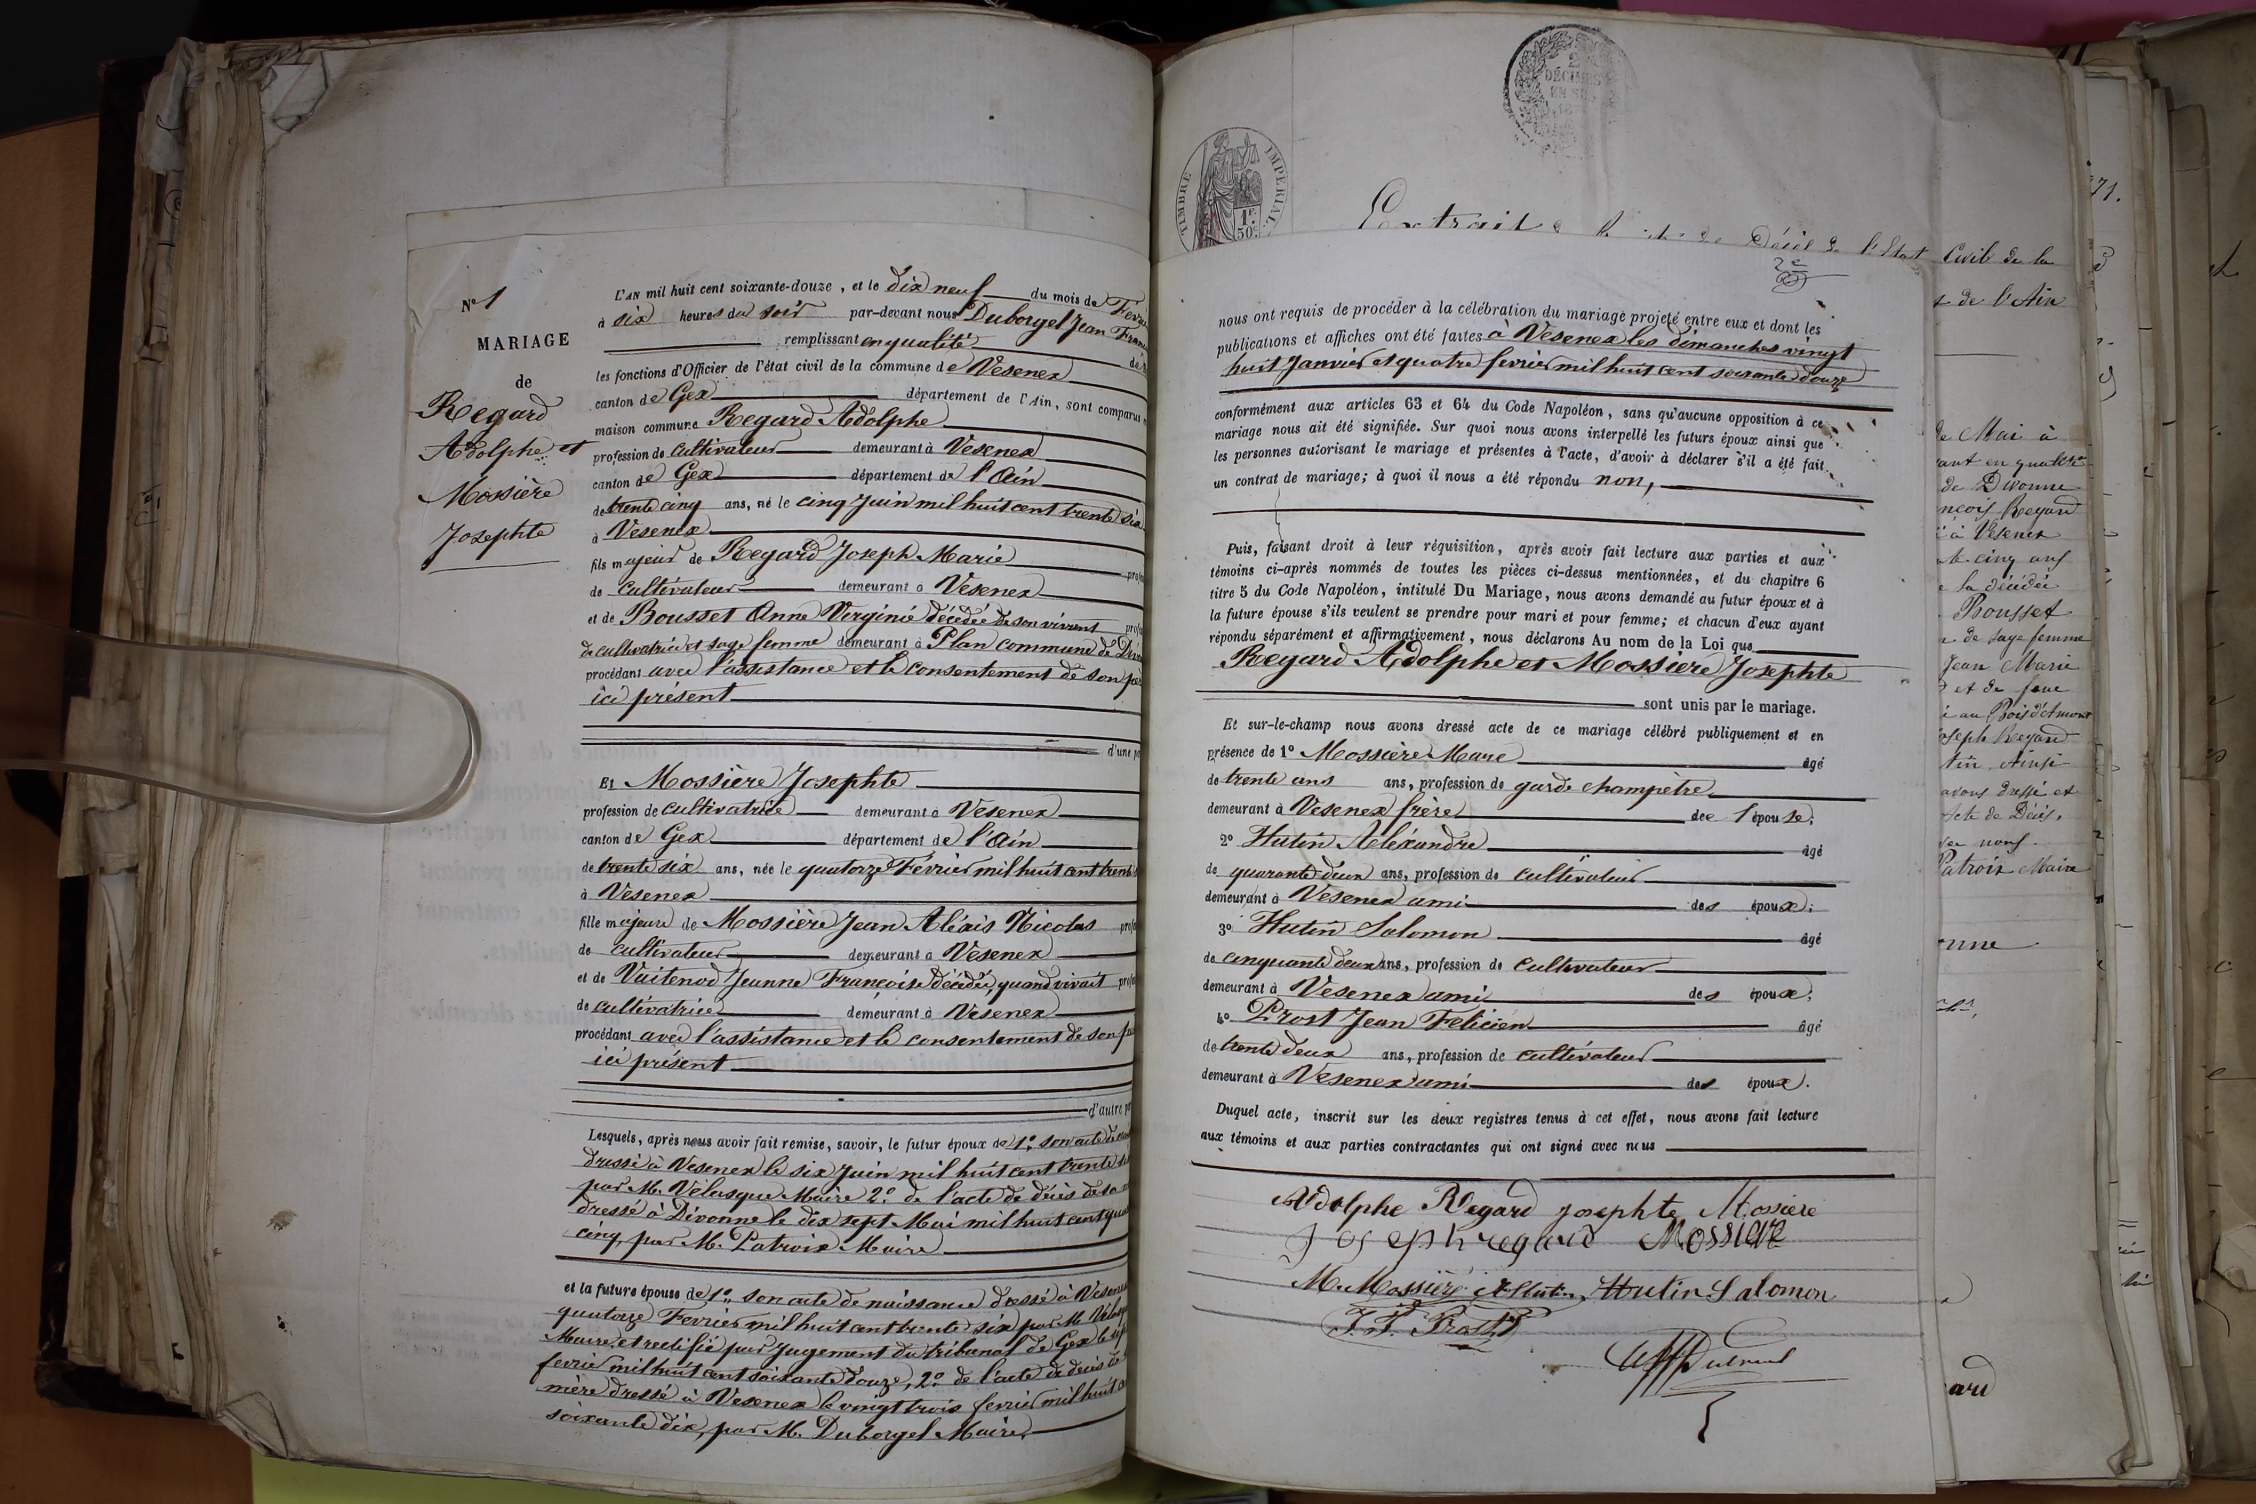 N° 1
MARIAGE
de
Regard
Adolphe et
Mossière
Josephte
L'AN mil huit cent soixante-douze, et le dix neuf du mois de
à six heures du soir par-devant nous Duborgel Jean
remplissant en qualité
les fonctions d'Officier de l'état civil de la commune de Vesenex
canton de Gex département de l'Ain, sont comparus
maison commune Regard Adolphe
profession de cultivateur demeurant à Vesenex
canton de Gex département de l'Ain
de trente cinq ans, né le cinq Juin mil huit cent trente six
à Vesenex
fils majeur de Regard Joseph Marie
de cultivateur demeurant à Vesenex
et de Bousset Anne Virginie décédée de son vivant
de cultivatrice et sage femme demeurant à Plan commune de
procédant avec l'assistance et le consentement de son
ici présent
d'une
Et Mossière Josephte
profession de cultivatrice demeurant à Vesenex
canton de Gex département de l'Ain
de trente six ans, née le quatorze Février mil huit cent
à Vesenex
fille majeure de Mossière Jean Aléxis Nicolas
de cultivateur demeurant à Vesenex
et de Vaitenod Jeanne Françoise décédée, quand vivait
de cultivatrice demeurant à Vesenex
procédant avec l'assistance et le consentement de son
ici présent
d'autre
Lesquels, après nous avoir fait remise, savoir, le futur époux de 1° son acte de
dressé à Vesenex le six Juin mil huit cent trente
par M. Vélasque Maire 2° de l'acte de décès de sa
dressé à Divonne le dix sept Mai mil huit cent
cinq, par M. Patroix Maire
et la future épouse de 1° son acte de naissance dressé à
quatorze Février mil huit cent trente six par M.
Maire et rectifié par jugement du tribunal de Gex le
fevrier mil huit cent soixante douze, 2° de l'acte de décès de
mère dressé à Vesenex le vingt trois fevrier mil huit
soixante dix, par M. Duborgel Maire
2 DÉCIMES
EN SUS
TIMBRE IMPÉRIAL
1F
50C
Extrait
Décès de l'Etat Civil de la
de l'Ain
nous ont requis de procéder à la célébration du mariage projeté entre eux et dont les
publications et affiches ont été faites à Vesenex les dimanches vingt
huit Janvier et quatre fevrier mil huit cent soixante douze
conformément aux articles 63 et 64 du Code Napoléon, sans qu'aucune opposition à ce
mariage nous ait été signifiée. Sur quoi nous avons interpellé les futurs époux ainsi que
les personnes autorisant le mariage et présentes à l'acte, d'avoir à déclarer s'il a été fait
un contrat de mariage; à quoi il nous a été répondu non,
Puis, faisant droit à leur réquisition, après avoir fait lecture aux parties et aux
témoins ci-après nommés de toutes les pièces ci-dessus mentionnées, et du chapitre 6
titre 5 du Code Napoléon, intitulé Du Mariage, nous avons demandé au futur époux et à
la future épouse s'ils veulent se prendre pour mari et pour femme; et chacun d'eux ayant
répondu séparément et affirmativement, nous déclarons Au nom de la Loi que
Regard Adolphe et Mossière Josephte
sont unis par le mariage.
Et sur-le-champ nous avons dressé acte de ce mariage célébré publiquement et en
présence de 1° Mossière Marc âgé
de trente ans ans, profession de garde champêtre
demeurant à Vesenex frère de l'épouse;
2° Hutin Aléxandre âgé
de quarante deux ans, profession de cultivateur
demeurant à Vesenex ami des époux;
3° Hutin Salomon âgé
de cinquante deux ans, profession de cultivateur
demeurant à Vesenex ami des époux;
4° Prost Jean Felicien âgé
de trente deux ans, profession de cultivateur
demeurant à Vesenex ami des époux.
Duquel acte, inscrit sur les deux registres tenus à cet effet, nous avons fait lecture
aux témoins et aux parties contractantes qui ont signé avec nous
Adolphe Regard Josephte Mossiere
Joseph regard Mossiere
M. Mossière A Hutin Hutin Salomon
J. F. Prost
71.
de Mai à
de Divonne
Regard
à Vesenex
cinq ans
la décédée
Bousset
de sage femme
Jean Marie
et de feue
au Bois d'Amont
Joseph Regard
Ainsi
avons dressé et
Acte de Décès,
nous
Patroix Maire